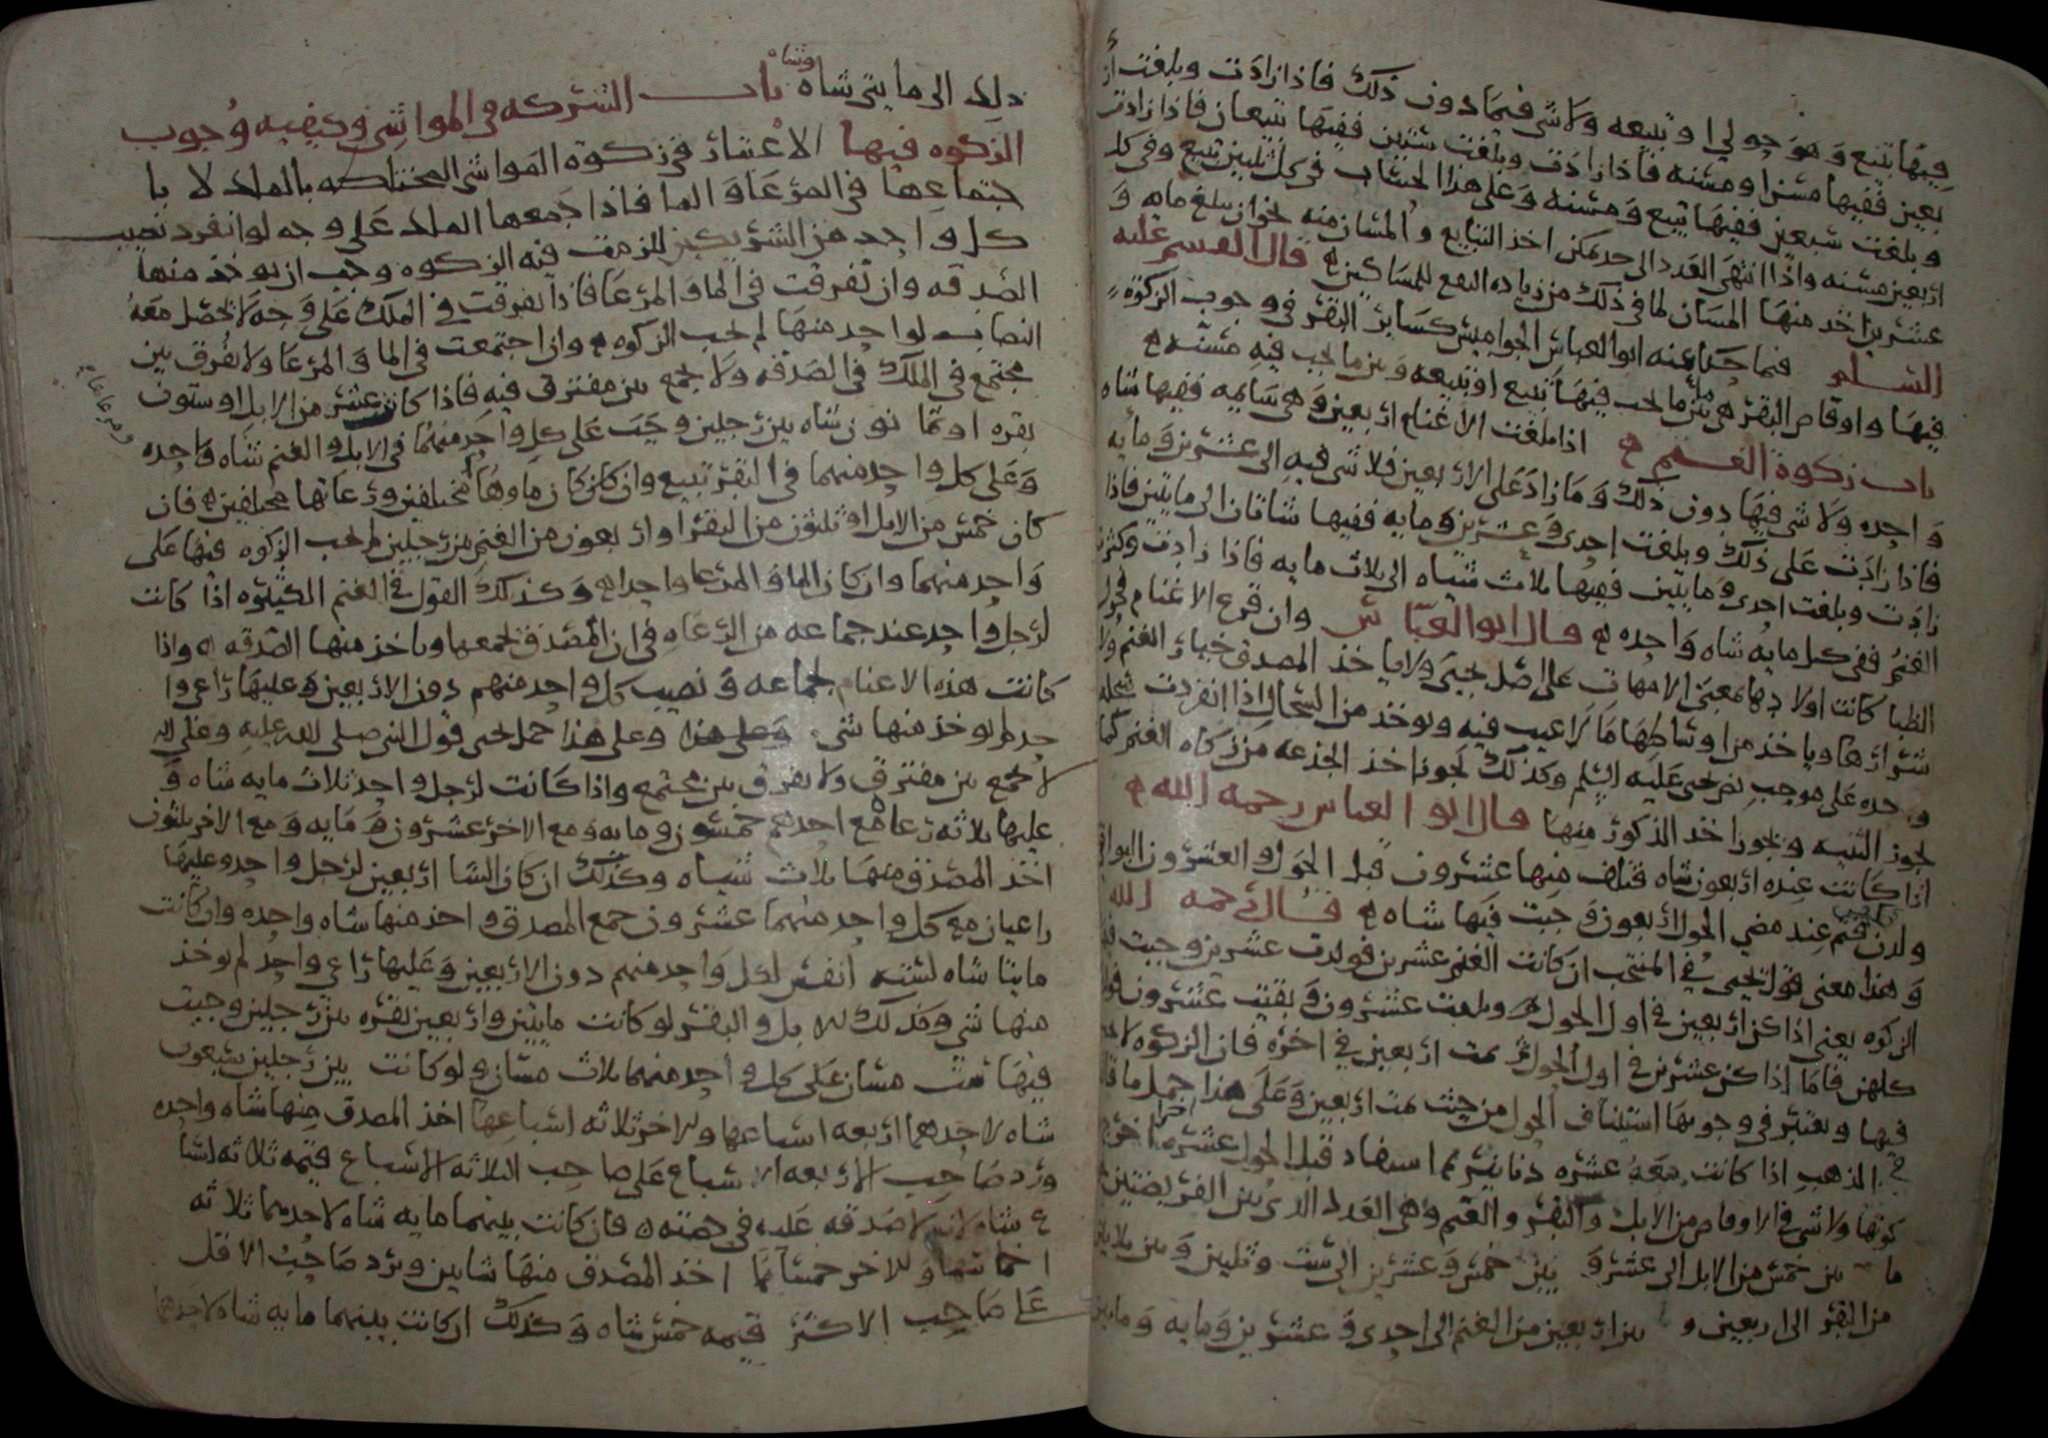 فيها تبيع وهو حولي او تبيعه ولا شي فيما دون ذلك فاذا زادت وبلغت ار
بعين ففيها مسن او مسنه فاذا زادت وبلغت ستين ففيها تبيعان فاذا زادت
وبلغت سبعين ففيها تبيع ومسنه وعلى هذا الحساب في كل ثلثين تبيع وفي كل
اربعين مسنه واذا انتهى العدد الى حد يمكن اخذ التبايع والمسان منه نحو ان يبلغ مايه و
عشرين اخذ منها المسان لما في ذلك من زياده النفع للمساكين قال القسم عليه
السلم فيما حكا عنه ابو العباس الجواميس كساير البقر في وجوب الزكوة
فيها واوقاص البقر هي ما بين ما يجب فيها تبيع او تبيعه وبين ما يجب فيه مسنه
باب زكوة الغنم اذا بلغت الاغنام اربعين وهي سايمه ففيها شاه
واحده ولا شي فيها دون ذلك وما زاد على الاربعين فلا شي فيه الى عشرين ومايه
فاذا زادت على ذلك وبلغت احدى وعشرين ومايه ففيها شاتان الى مايتين فاذا
زادت وبلغت احدى ومايتين ففيها ثلاث شياه الى ثلاث مايه فاذا زادت وكثرت
الغنم ففي كل مايه شاه واحده قال ابو العباس وان قرع الاغنام فحول
الظبا كانت اولادها بمعنى الامهات على اصل يحيى ولا ياخذ المصدق خيار الغنم ولا
شرارها وياخذ من اوساطها ما لا عيب فيه ويوخذ من السخال اذا انفردت سخله
وحده على موجب نص يحيى عليه السلم وكذلك يجوز اخذ الجذعه من زكاه الغنم كما
يجوز الثنيه ويجوز اخذ الذكور منها قال ابو العباس رحمه الله
اذا كانت عنده اربعون شاه فتلف منها عشرون قبل الحول والعشرون البواقي
ولدن فتم عند مضي الحول اربعون وجبت فيها شاه قال رحمه الله
وهذا معنى قول يحيى في المنتخب ان كانت الغنم عشرين فولدت عشرين وجبت فيها
الزكوه يعني اذا كن اربعين في اول الحول وبقيت عشرون
كلهن فاما اذا كن عشرين في اول الحول ثم تمت اربعين في اخره فان الزكوه لا تجب
فيها ويعتبر في وجوبها استيناف الحول من حيث تمت اربعين وعلى هذا حمل ما قال
في المذهب اذا كانت معه عشره دنانير ثم استفاد قبل الحول عشره اخرى
ولا شي في الاوقاص من الابل والبقر والغنم وهي العدد الذي بين الفريضتين
ما بين خمس من الابل الى عشر وبين خمس وعشرين الى ست وثلثين وبين ثلاثين
من البقر الى اربعين وبين اربعين من الغنم الى احدى وعشرين ومايه وما بين
ذلك الى مايتي شاه وشاه باب الشركه في المواشي وكيفيه وجوب
الزكوه فيها الاعتبار في زكوة المواشي المختلطه بالملك لا با
جتماعها في المرعا والما فاذا جمعها الملك على وجه لو انفرد نصيب
كل واحد من الشريكين للزمت فيه الزكوه وجب ان يوخذ منها
الصدقه وان تفرقت في الما والمرعا فاذا تفرقت في الملك على وجه لا يحصل معه
النصاب لواحد منها لم تجب الزكوه وان اجتمعت في الما والمرعا ولا يفرق بين
مجتمع في الملك في الصدقه ولا يجمع بين مفترق فيه فاذا كان عشر من الابل او ستون
بقره او ثمانون شاه بين رجلين وجب على كل واحد منهما في الابل والغنم شاه واحده
وعلى كل واحد منهما في البقر تبيع وان كان ماوهما مختلفين ورعاتها مختلفين فان
كان خمس من الابل او ثلثون من البقر او اربعون من الغنم بين رجلين لم تجب الزكوه فيها على
واحد منهما وان كان الما والمرعا واحدا وكذلك القول في الغنم الكثيره اذا كانت
لرجل واحد عند جماعه من الرعاه في ان المصدق يجمعها وياخذ منها الصدقه واذا
كانت هذه الاغنام لجماعه ونصيب كل واحد منهم دون الاربعين وعليها راعي وا
حد لم يوخذ منها شي وعلى هذا وعلى هذا حمل يحيى قول النبي صلى الله عليه وعلى اله
لا يجمع بين مفترق ولا يفرق بين مجتمع واذا كانت لرجل واحد ثلاث مايه شاه و
عليها ثلاثه رعا مع احدهم خمسون ومايه ومع الاخر عشرون ومايه ومع الاخر ثلثون
اخذ المصدق منها ثلاث شياه وكذلك ان كان الشا اربعين لرجل واحد وعليها
راعيان مع كل واحد منهما عشرون جمع المصدق واخذ منها شاه واحده وان كانت
مايتا شاه لسته انفس لكل واحد منهم دون الاربعين وعليها راعي واحد لم يوخذ
منها شي وكذلك الابل والبقر لو كانت مايتين واربعين بقره بين رجلين وجبت
فيها ست مسان على كل واحد منهما ثلاث مسان ولو كانت بين رجلين سبعون
شاه لاحدهما اربعه اسباعها وللاخر ثلاثه اسباعها اخذ المصدق منها شاه واحده
ورد صاحب الاربعه الاسباع على صاحب الثلاثه الاسباع قيمه ثلاثه اسبا
ع شاه لانه لا صدقه عليه في حصته فان كانت بينهما مايه شاه لاحدهما ثلاثه
اخماسها وللاخر خمساها اخذ المصدق منها شاتين ويرد صاحب الاقل
على صاحب الاكثر قيمه خمس شاه وكذلك ان كانت بينهما مايه شاه لاحدهما